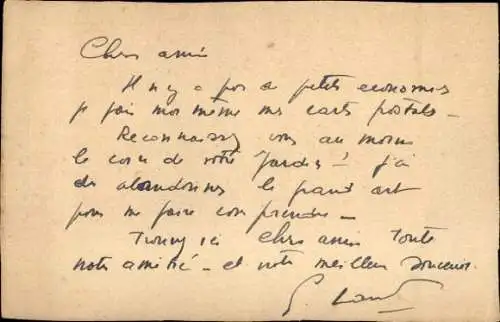 Chers amis
Il n'y a pas de petits economies
je fais moi même mes carts postals –
Reconnaissez vous au moins
le coin de votre "Jardin"! j'ai
du abandonner le grand art
pour me faire comprendre –
Trouvez ici chers amis toute
notre amitié – et notre meilleur souvenir